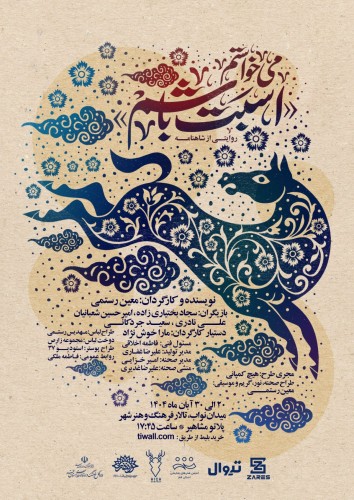 می‌خواستم
«اسبت باشم»
روایتی از شاهنامه
نویسنده و کارگردان: معین رستمی
بازیگران: سجاد بختیاری زاده، امیرحسین شعبانیان
علی نادری، سعید جردکانی
دستیار کارگردان: مارا خوش نژاد
مسئول فنی: فاطمه اخلاقی
مدیر تولید: علیرضا غفاری
مدیر صحنه: امیر خیرایی
منشی صحنه: علیرضا غدیری
طراح لباس: مهدیس رستمی
دوخت لباس: مجموعه زارس
طراح پوستر: استودیو ۲۸
روابط عمومی: فاطمه ملکی
مجری طرح: هیچ کمپانی
طراح صحنه، نور، گریم و موسیقی:
معین رستمی
۲۰ الی ۳۰ آبان ماه ۱۴۰۴
میدان نواب، تالار فرهنگ و هنر شهر
پلاتو مشاهیر * ساعت ۱۷:۴۵
خرید بلیط از طریق: tiwall.com
تیوال
ZARES